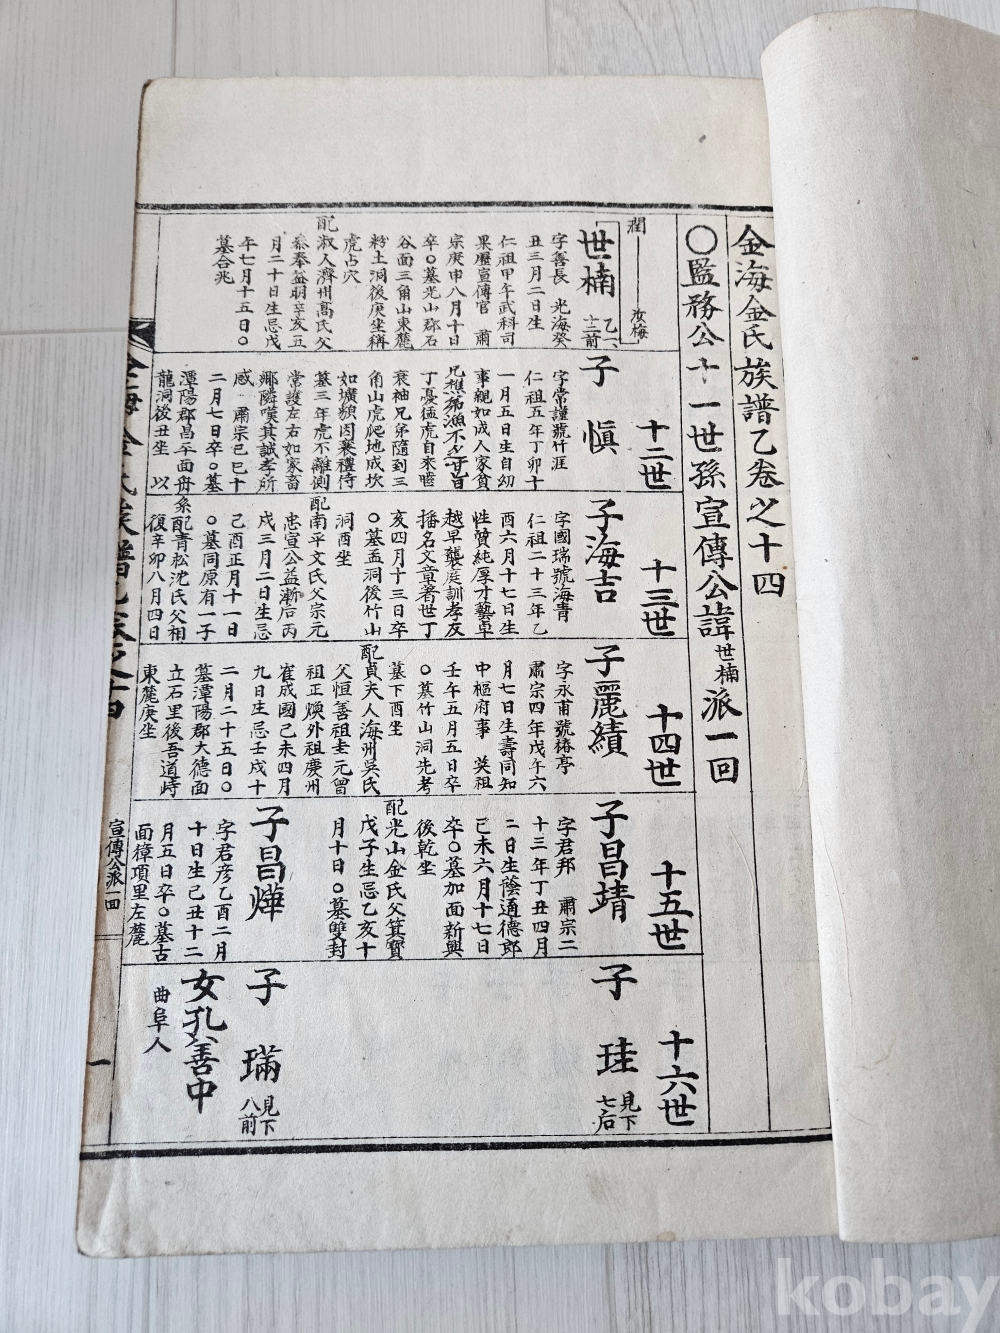 金海金氏族譜乙卷之十四
〇監務公十一世孫宣傳公諱世楠派一回
潤 汝梅
世楠 乙一 十二前
字善長 光海癸
丑三月二日生
仁祖甲午武科司
果歷宣傳官 肅
宗庚申八月十日
卒〇墓光山郡石
谷面三角山東麓
粉土洞後庚坐稱
虎占穴
配淑人濟州高氏父
泰奉益明辛亥五
月二十日生忌戊
午七月十五日〇
墓合兆
十二世
子 愼
字常謹號竹涯
仁祖五年丁卯十
一月五日生自幼
事親如成人家貧
兄樵弟漁不乏甘旨
丁憂猛虎自來曉
衰袖兄弟隨到三
角山虎爬地成坎
如壙貌因襄禮侍
墓三年虎不離側
常護左右如家畜
鄕隣嘆其誠孝所
感 肅宗己巳十
二月七日卒〇墓
潭陽郡昌平面舟
龍洞後丑坐 以
十三世
子海吉
字國瑞號海青
仁祖二十三年乙
酉六月十七日生
性質純厚才藝卓
越早襲庭訓孝友
播名文章著世丁
亥四月十三日卒
〇墓孟洞後竹山
洞酉坐
配南平文氏父宗元
忠宣公益漸后丙
戌三月二日生忌
己酉正月十一日
〇墓同原有一子
系配青松沈氏父相
復辛卯八月四日
十四世
子麗績
字永甫號椿亭
肅宗四年戊午六
月七日生壽同知
中樞府事 英祖
壬午五月五日卒
〇墓竹山洞先考
墓下酉坐
配貞夫人海州吳氏
父恒善祖圭元曾
祖正煥外祖慶州
崔成國己未四月
九日生忌壬戌十
二月二十五日〇
墓潭陽郡大德面
立石里後吾道峙
東麓庚坐
十五世
子昌靖
字君邦 肅宗二
十三年丁丑四月
二日生蔭通德郎
己未六月十七日
卒〇墓加面新興
後乾坐
配光山金氏父箕寶
戊子生忌乙亥十
月十日〇墓雙封
子昌燁
字君彦乙酉二月
十日生己丑十二
月五日卒〇墓古
面獐項里左麓
十六世
子 珪 見下 七后
子 璊 見下 八前
女孔善中
曲阜人
金海金氏族譜乙卷之十四
宣傳公派一回
一
kobay